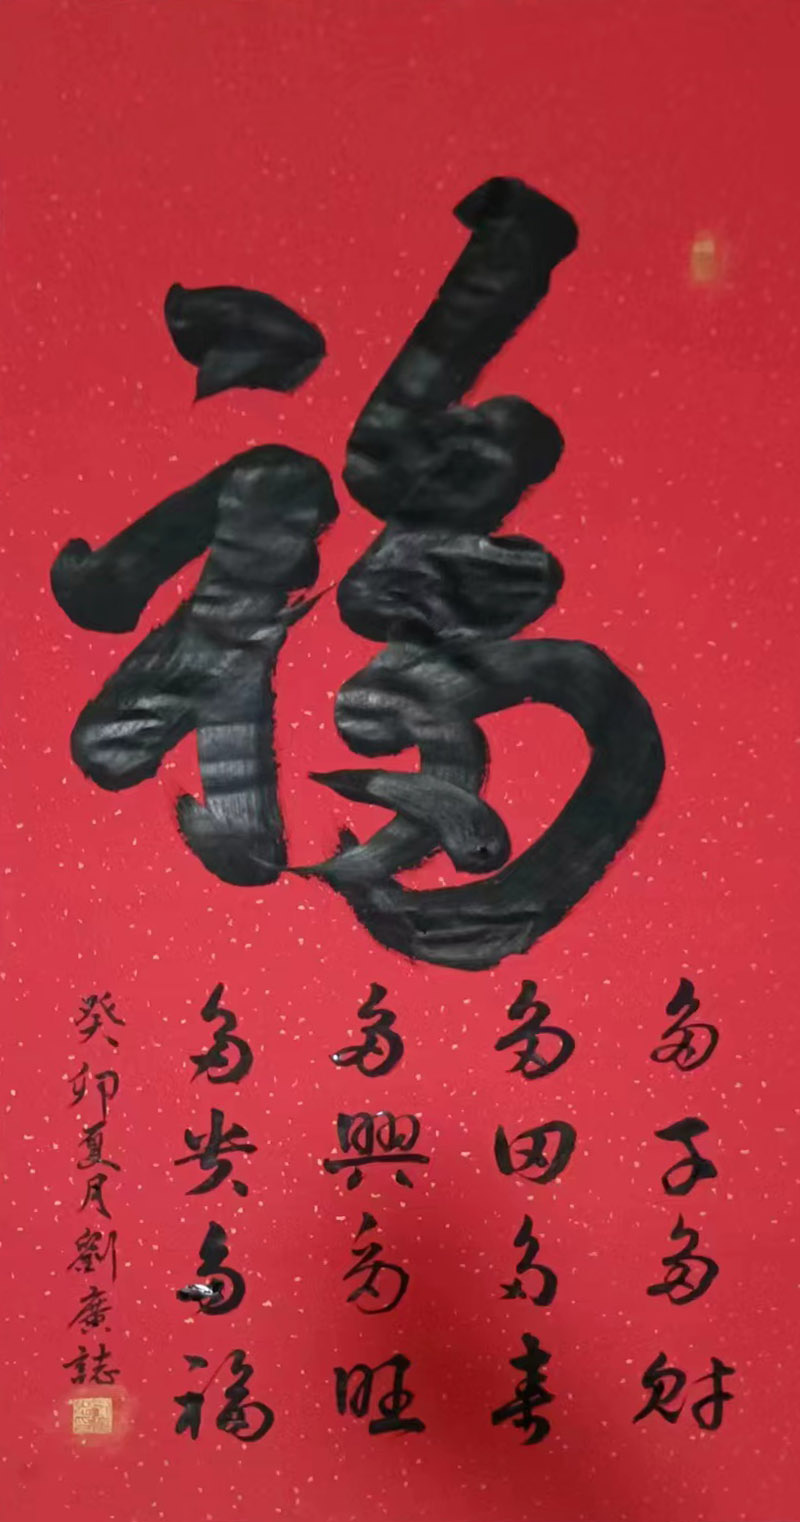 福
多子多财
多田多寿
多興多旺
多贵多福
癸卯夏月劉廣誌